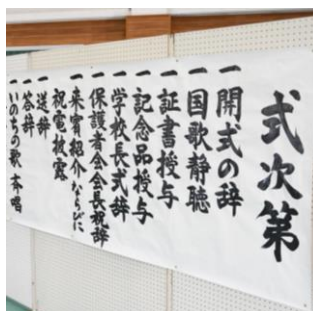 式次第
一 開式の辞
一 国歌静聴
一 証書授与
一 記念品授与
一 学校長式辞
一 保護者会会長祝辞
一 来賓紹介ならびに
祝電披露
一 送辞
一 答辞
一 いのちの歌 斉唱